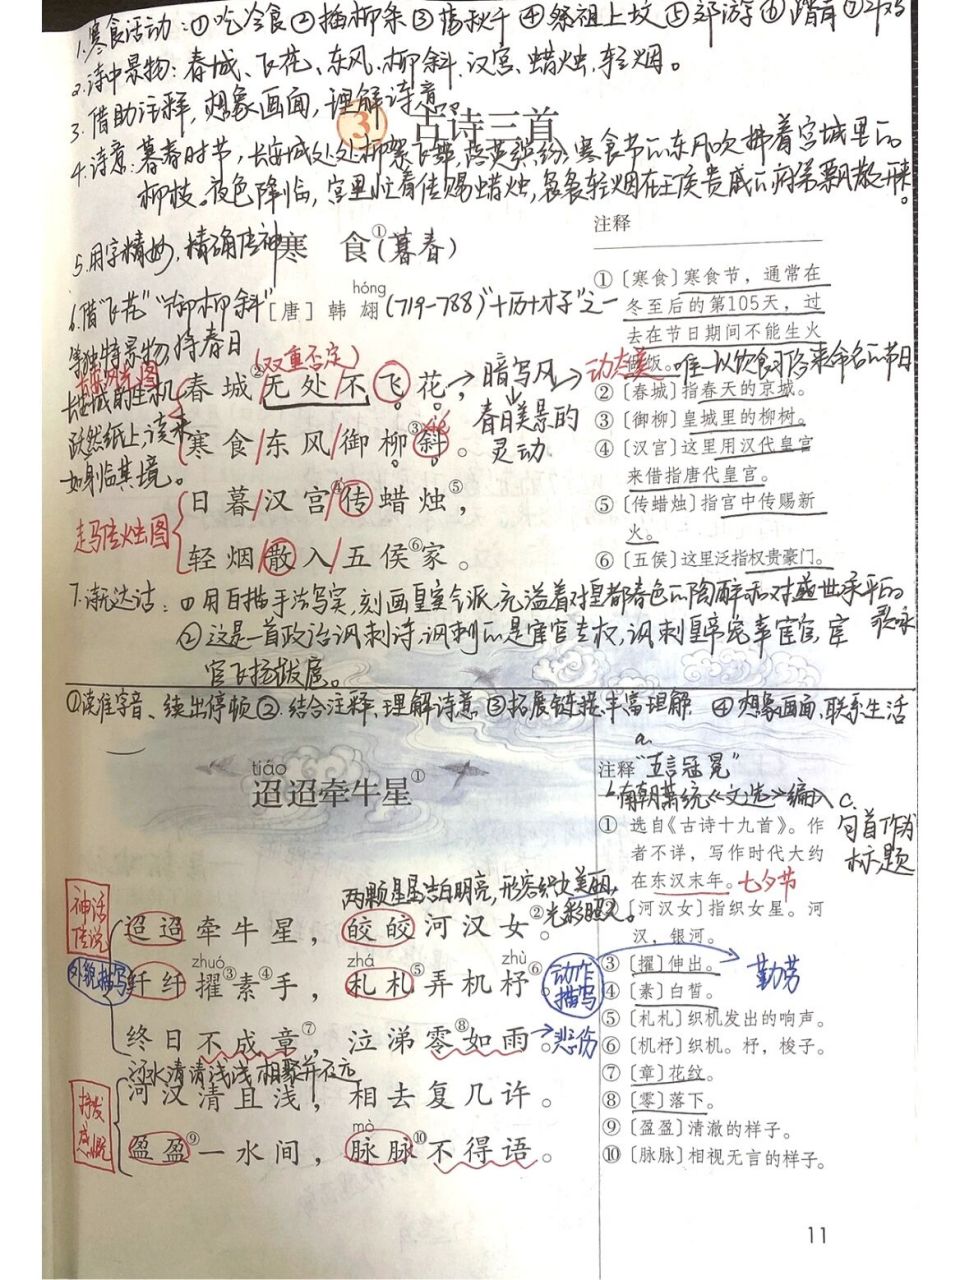 1.寒食活动:①吃冷食②插柳条③荡秋千④祭祖上坟⑤郊游⑥踏青⑦斗鸡
2.诗中景物:春城、飞花、东风、柳斜、汉宫、蜡烛、轻烟。
3.借助注释,想象画面,理解诗意
③ 古诗三首
4.诗意:暮春时节,长安城处处柳絮飞舞,落英缤纷,寒食节的东风吹拂着宫城里的
柳枝。夜色降临,宫里忙着传赐蜡烛,袅袅轻烟在王侯贵戚的府第飘散开来。
5.用字精妙,精确传神
寒 食①(暮春)
6.借“飞花”“御柳斜”
等独特景物,将春日
长安城的生机
跃然纸上,读来
如身临其境。
hóng
[唐] 韩 翃 (719-788)“十历十才子”之一
(双重否定)
春城②无处不飞花,→暗写风→动态美
春日美景的
灵动
寒食/东风/御柳③斜。
日暮/汉宫/④传蜡烛⑤,
轻烟/散入/五侯⑥家。
走马传烛图
注释
①〔寒食〕寒食节,通常在
冬至后的第105天,过
去在节日期间不能生火
做饭。唯一以饮食习俗来命名的节日
②〔春城〕指春天的京城。
③〔御柳〕皇城里的柳树。
④〔汉宫〕这里用汉代皇宫
来借指唐代皇宫。
⑤〔传蜡烛〕指宫中传赐新
火。
⑥〔五侯〕这里泛指权贵豪门。
7.诗无达诂:①用白描手法写实,刻画皇室气派,充溢着对皇都春色的陶醉和对盛世承平的
歌咏
②这是一首政治讽刺诗,讽刺的是宦官专权,讽刺皇帝宠幸宦官,宦
官飞扬跋扈。
①读准字音、读出停顿②.结合注释,理解诗意③拓展链接,丰富理解 ④想象画面,联系生活
tiáo
迢迢牵牛星①
注释
a.
“五言冠冕”
b南朝萧统《文选》编入
c.
句首作为
标题
①选自《古诗十九首》。作
者不详,写作时代大约
在东汉末年。七夕节
②〔河汉女〕指织女星。河
汉,银河。
③〔擢〕伸出。
勤劳
④〔素〕白皙。
⑤〔札札〕织机发出的响声。
⑥〔机杼〕织机。杼,梭子。
⑦〔章〕花纹。
⑧〔零〕落下。
⑨〔盈盈〕清澈的样子。
⑩〔脉脉〕相视无言的样子。
神话
传说
两颗星星洁白明亮,形容织女美丽,
光彩照人。
迢迢牵牛星,皎皎河汉女②。
外貌描写
zhuó zhá zhù
纤纤擢③素④手,札札⑤弄机杼⑥。
动作
描写
终日不成章⑦,泣涕零⑧如雨。→悲伤
河水清清浅浅,相聚并不远
河汉清且浅,相去复几许。
抒发
感慨
mò
盈盈⑨一水间,脉脉⑩不得语。
11